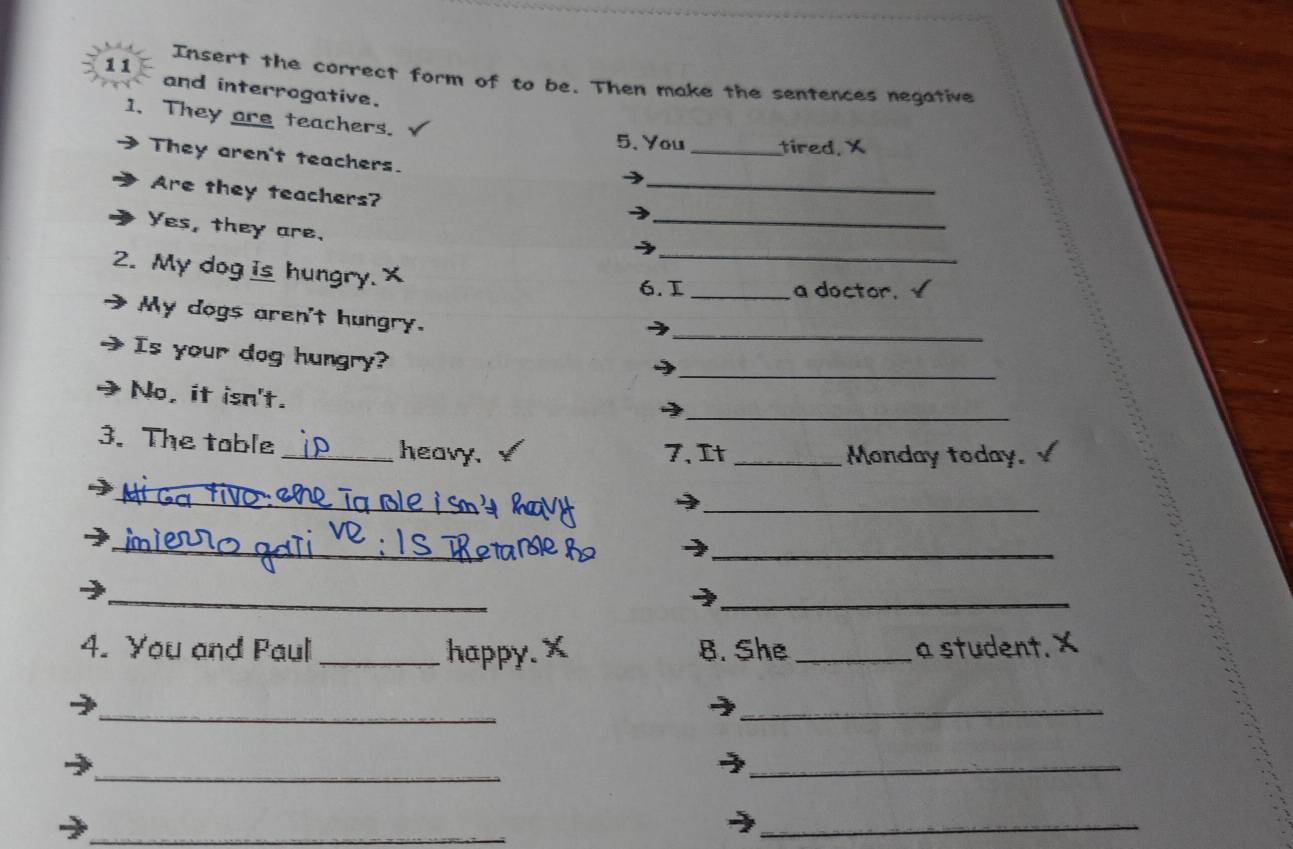 11 Insert the correct form of to be. Then make the sentences negative
and interrogative.
1. They are teachers. ✓
→ They aren't teachers.
→ Are they teachers?
→ Yes, they are.
2. My dog is hungry. X
→ My dogs aren't hungry.
→ Is your dog hungry?
→ No, it isn't.
3. The table ______ heavy. ✓
→ isn't
→ : IS
→ ______
4. You and Paul ______ happy. X
→ ______
→ ______
→ ______
5. You ______ tired. X
→ ______
→ ______
→ ______
6. I ______ a doctor. ✓
→ ______
→ ______
→ ______
7. It ______ Monday today. ✓
→ ______
→ ______
→ ______
8. She ______ a student. X
→ ______
→ ______
→ ______